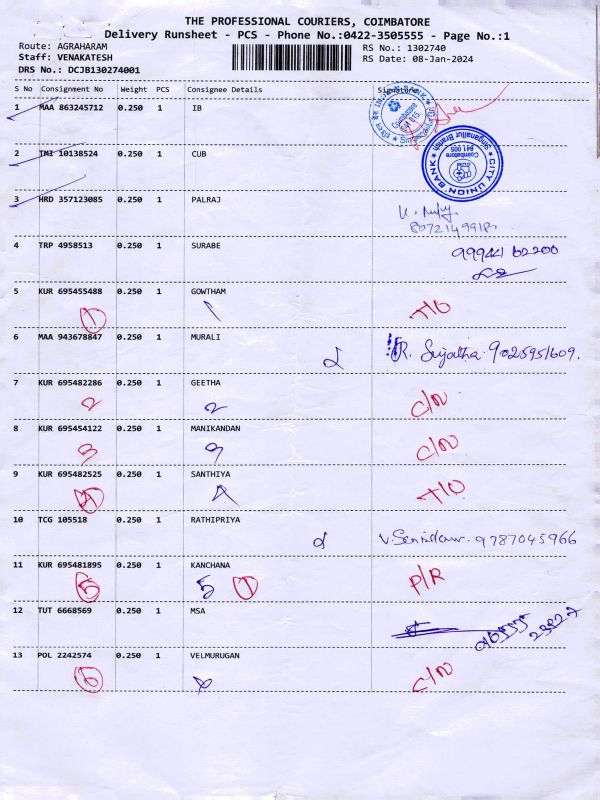 THE PROFESSIONAL COURIERS, COIMBATORE
Delivery Runsheet - PCS - Phone No.:0422-3505555 - Page No.:1
Route: AGRAHARAM
RS No.: 1302740
Staff: VENAKATESH
RS Date: 08-Jan-2024
DRS No.: DCJB130274001
S No Consignment No Weight PCS Consignee Details Signature
1 MAA 863245712 0.250 1 IB
2 TMI 10138524 0.250 1 CUB
CITY UNION BANK
Singanallur Branch
Coimbatore
641 005
3 HRD 357123085 0.250 1 PALRAJ
4 TRP 4958513 0.250 1 SURABE
5 KUR 695455488 0.250 1 GOWTHAM
1
6 MAA 943678847 0.250 1 MURALI R. Sujatha. 9025951609.
7 KUR 695482286 0.250 1 GEETHA C/N
2 2
8 KUR 695454122 0.250 1 MANIKANDAN C/N
3 3
9 KUR 695482525 0.250 1 SANTHIYA
4 4
10 TCG 105518 0.250 1 RATHIPRIYA 9787045966
11 KUR 695481895 0.250 1 KANCHANA P/R
5 5 1
12 TUT 6668569 0.250 1 MSA
13 POL 2242574 0.250 1 VELMURUGAN C/N
6 6